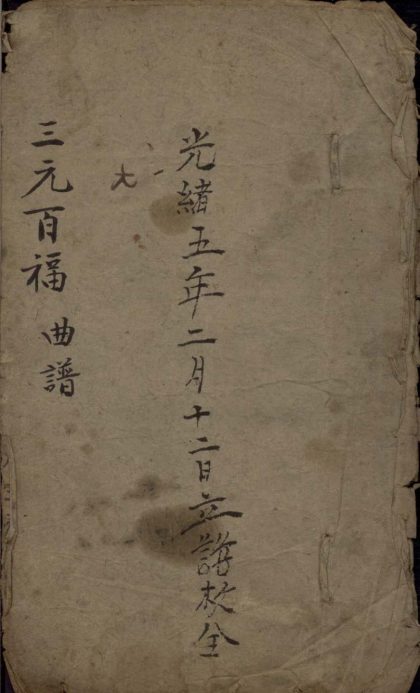 光緒五年二月十二日立譜校全
大
三元百福 曲譜